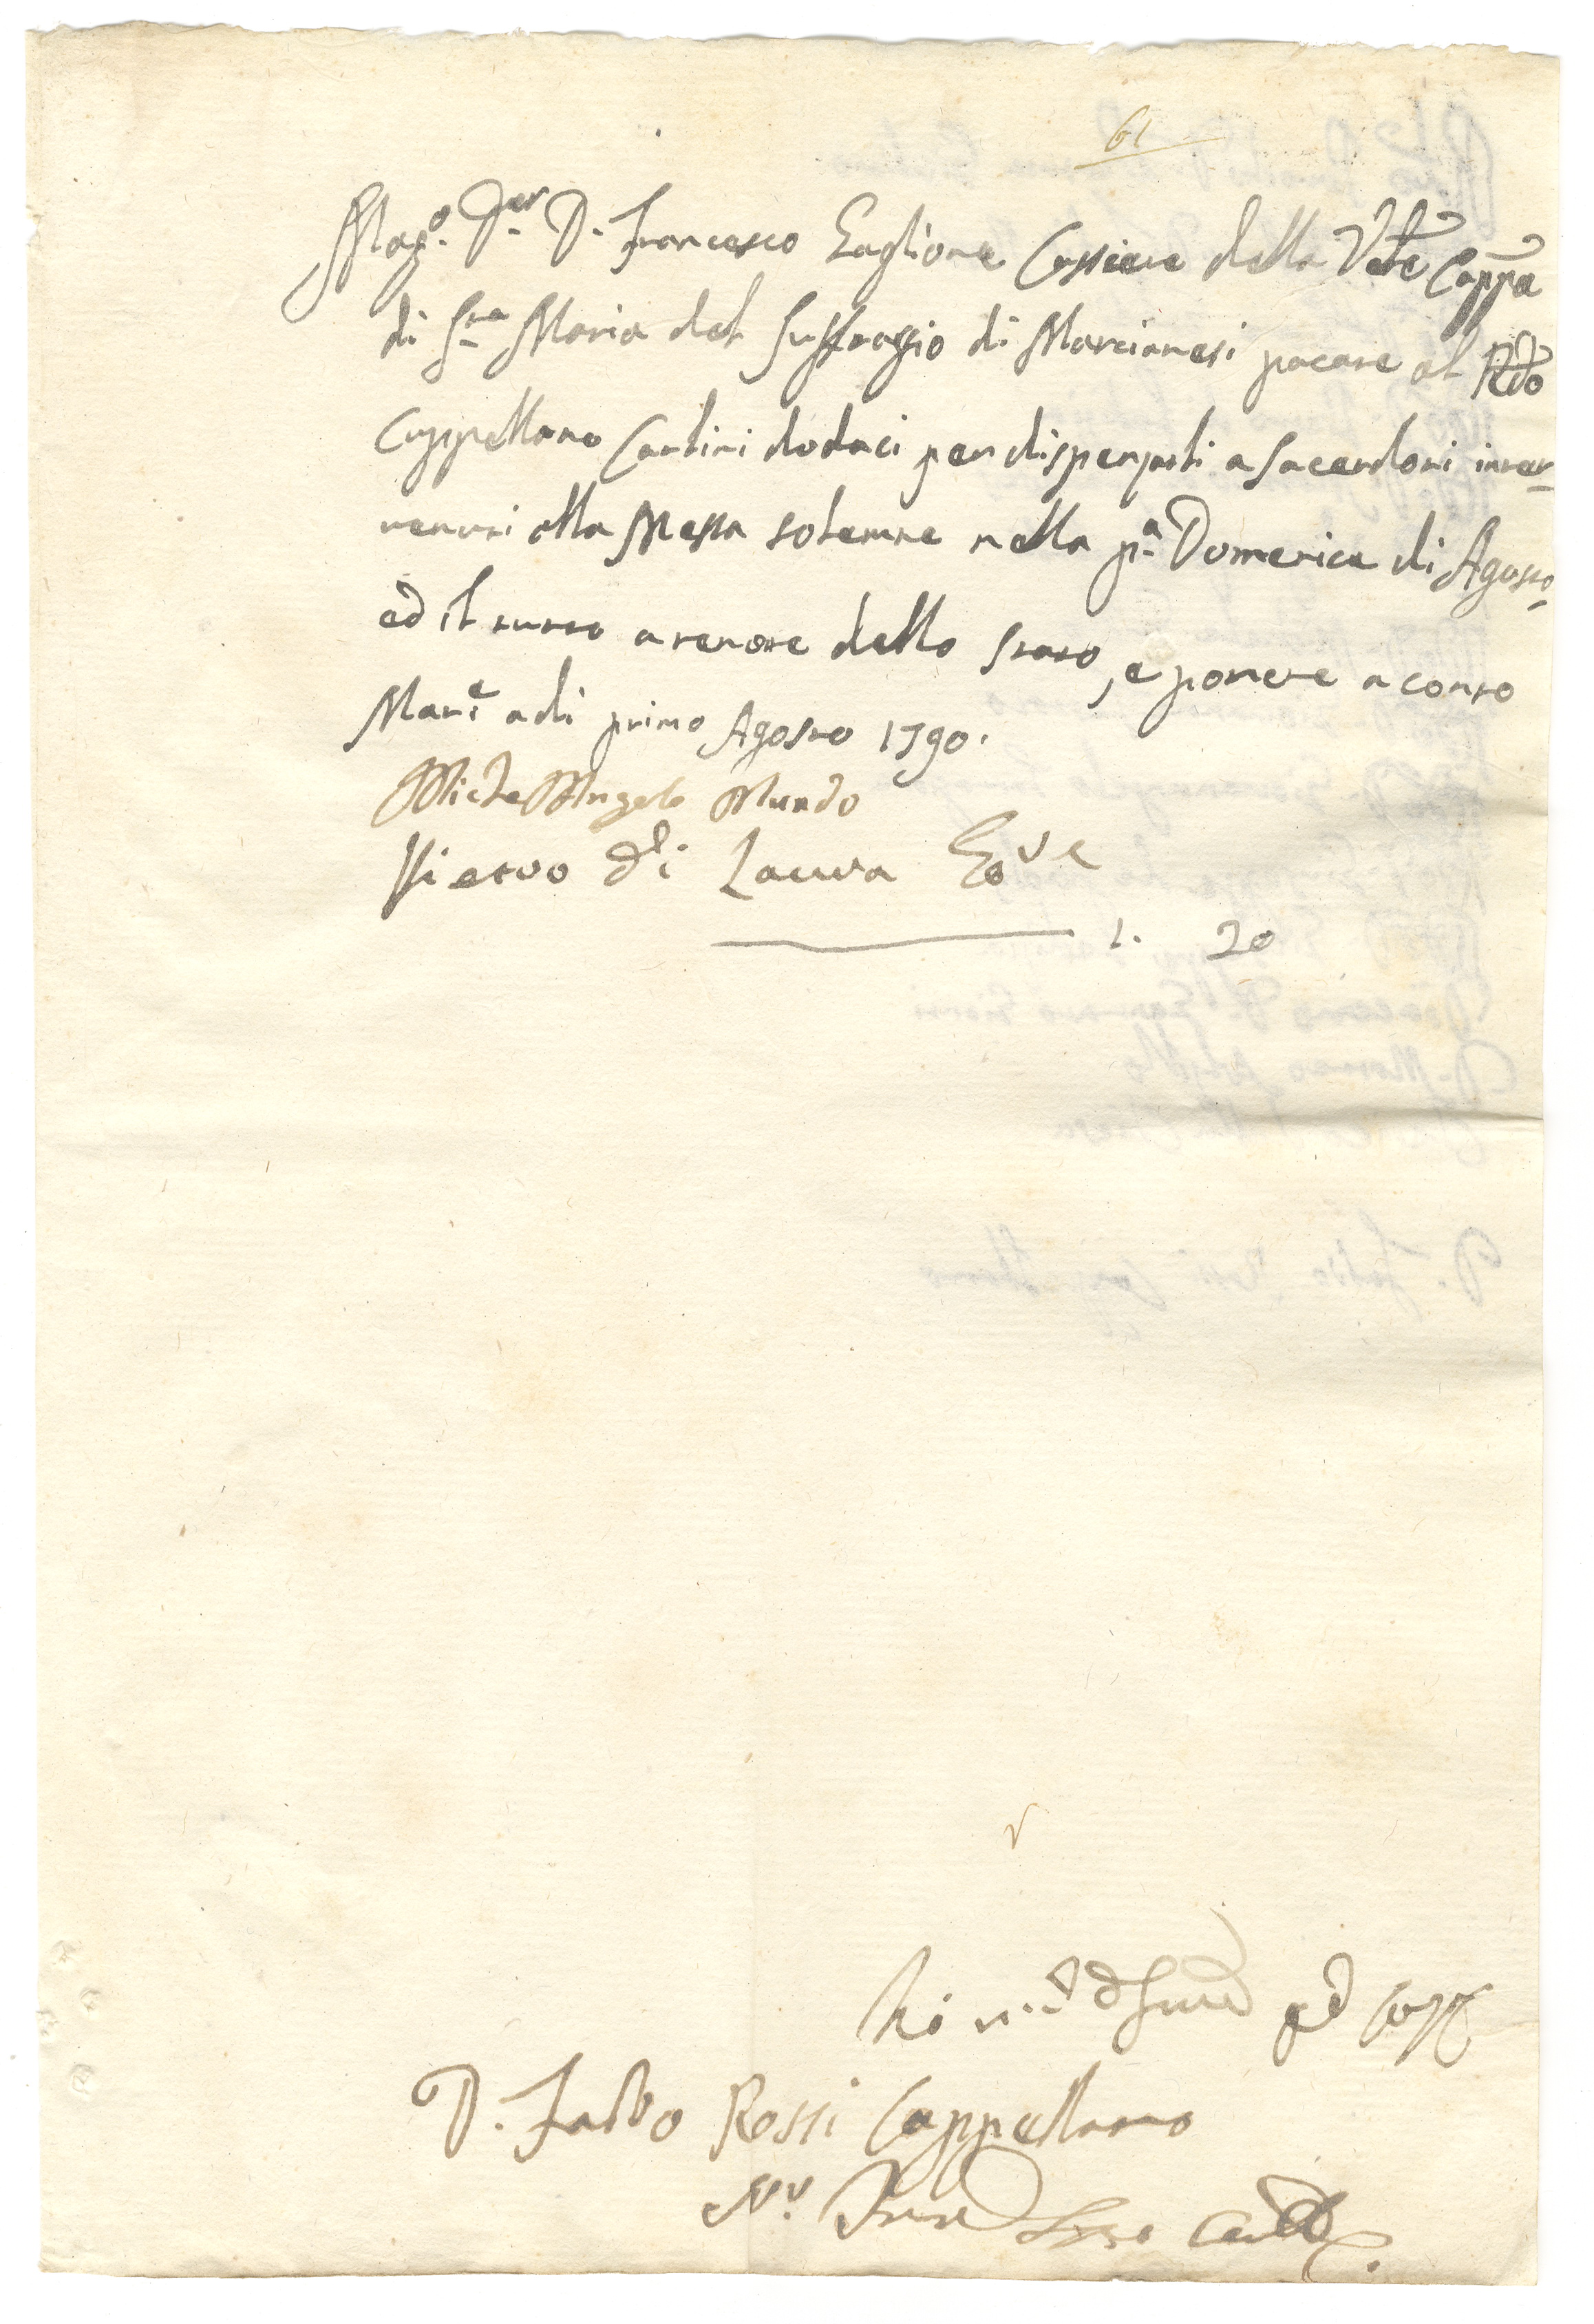 61
Mag.º D.er D. Francesco Taglione Cassiere della Vēle Capp̄a
di S.ra Maria del Suffraggio di Marcianesi pacare al R̄do
Cappellano Carlini dodaci per dispenzati a Sacerdoti inter-
venuti alla Messa solenne nella p.a Domenica di Agosto
ed il tutto a tenore dello stato, e ponete a conto
Mar.e a di primo Agosto 1790.
Michel'Angelo Mundo
Pietro di Laura
1. 20
D. Fabbo Rossi Cappellano